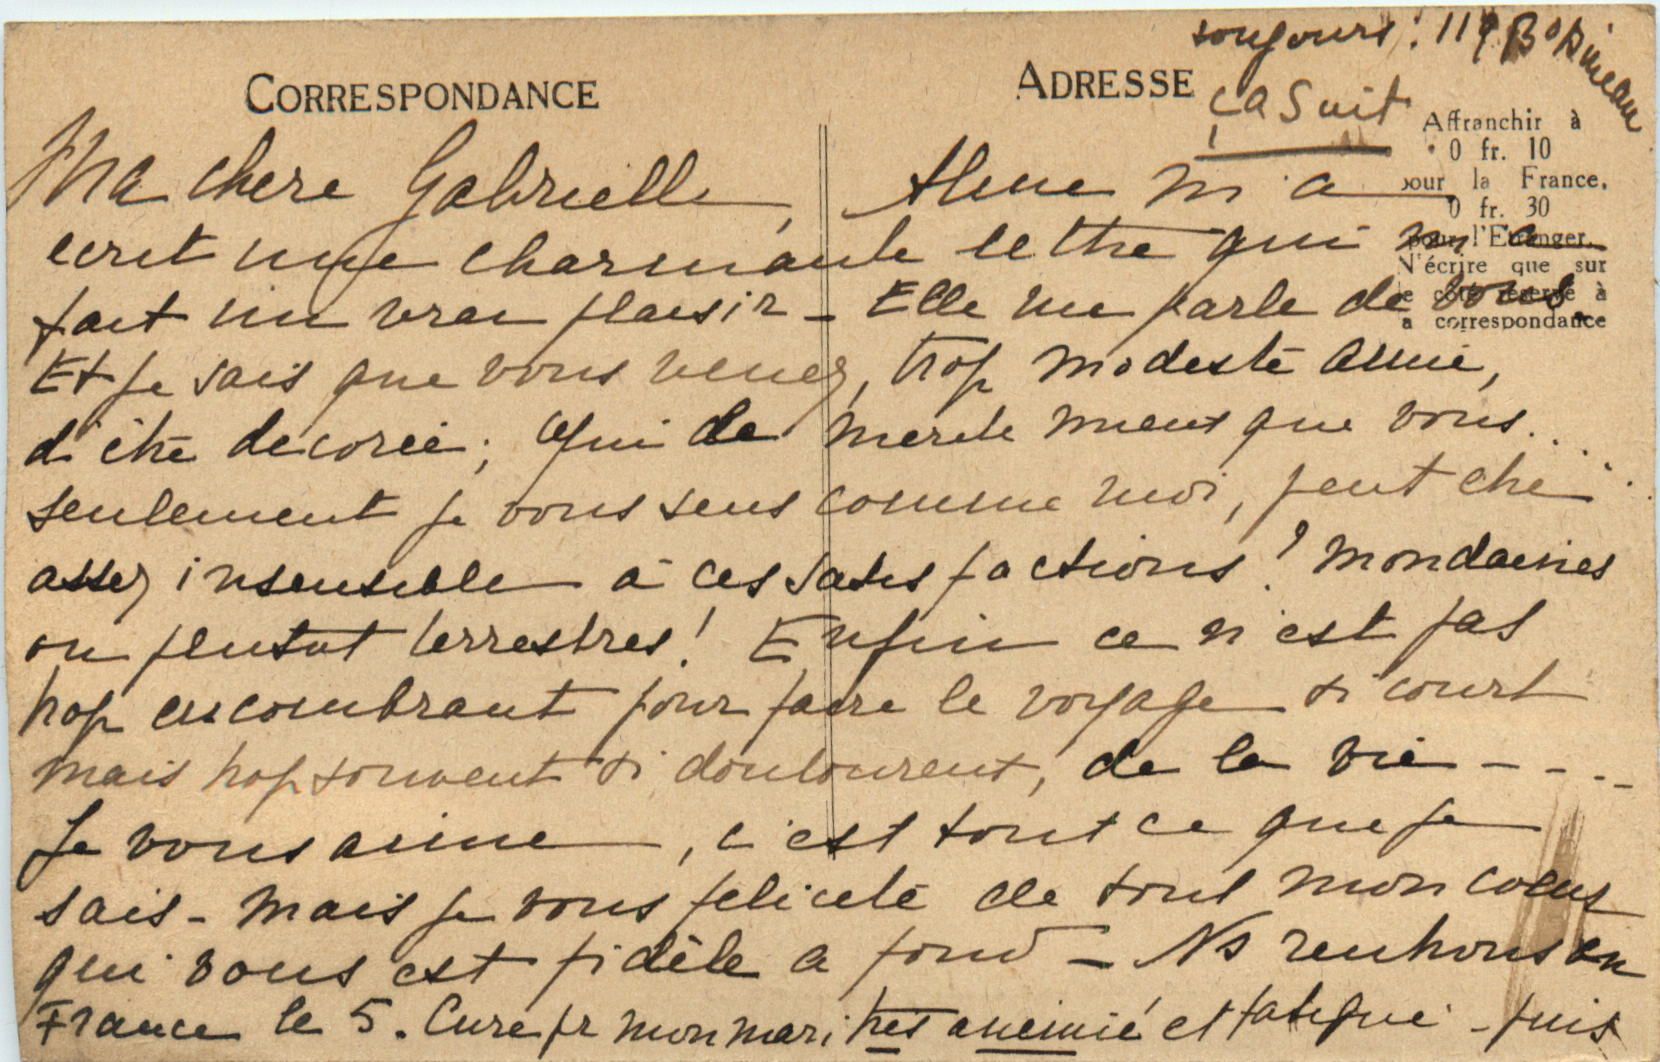 toujours : 119 Bd Bineau
ça suit
CORRESPONDANCE
ADRESSE
Affranchir à
0 fr. 10
pour la France,
0 fr. 30
pour l'Etranger.
N'écrire que sur
le côté réservé à
la correspondance
Ma chere Gabrielle, m'a
ecrit une charmante lettre qui m'a
fait un vrai plaisir - Elle me parle de vous.
Et je sais que vous venez, trop modeste amie,
d'être decorée ; qui le merite mieux que vous...
seulement je vous sens comme moi, peut etre
assez insensible à ces satisfactions ! mondaines
ou plutot terrestres ! Enfin ce n'est pas
trop encombrant pour faire le voyage si court
mais trop souvent si douloureux, de la vie - - - -
Je vous aime, c'est tout ce que je
sais - mais je vous felicite de tout mon coeur
qui vous est fidèle a fond - Ns rentrons en
France le 5. Cure pr mon mari très anémié et fatigué - puis